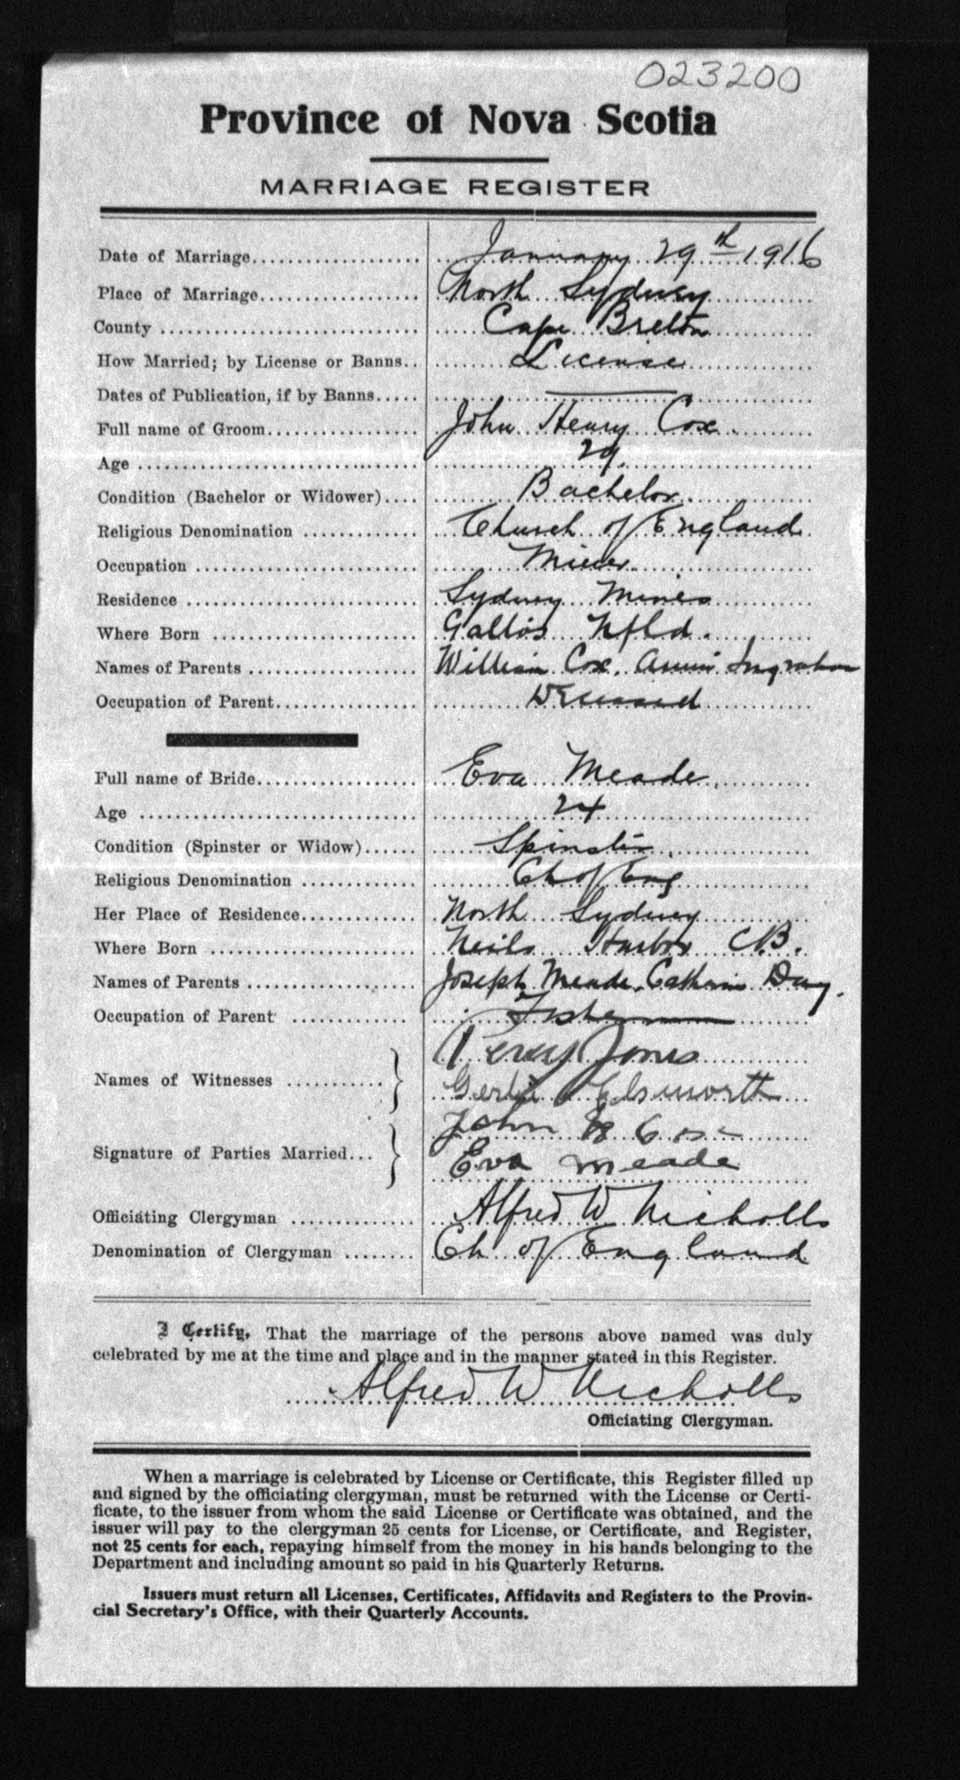 023200
Province of Nova Scotia
MARRIAGE REGISTER
Date of Marriage January 29th 1916
Place of Marriage North Sydney
County Cape Breton
How Married; by License or Banns License
Dates of Publication, if by Banns
Full name of Groom John Henry Cox
Age 29
Condition (Bachelor or Widower) Bachelor
Religious Denomination Church of England
Occupation Miner
Residence Sydney Mines
Where Born Nfld.
Names of Parents William Cox. Ingraham
Occupation of Parent Deceased
Full name of Bride Eva Meade
Age 24
Condition (Spinster or Widow) Spinster
Religious Denomination Ch of Eng
Her Place of Residence North Sydney
Where Born Neils Harbor C.B.
Names of Parents Joseph Meade. Day.
Occupation of Parent Fisherman
Percy Jones
Names of Witnesses
Elsworth
John H Cox
Signature of Parties Married
Eva Meade
Officiating Clergyman Alfred W Nicholls
Denomination of Clergyman Ch of England
I Certify, That the marriage of the persons above named was duly
celebrated by me at the time and place and in the manner stated in this Register.
Alfred W Nicholls
Officiating Clergyman.
When a marriage is celebrated by License or Certificate, this Register filled up
and signed by the officiating clergyman, must be returned with the License or Certi-
ficate, to the issuer from whom the said License or Certificate was obtained, and the
issuer will pay to the clergyman 25 cents for License, or Certificate, and Register,
not 25 cents for each, repaying himself from the money in his hands belonging to the
Department and including amount so paid in his Quarterly Returns.
Issuers must return all Licenses, Certificates, Affidavits and Registers to the Provin-
cial Secretary's Office, with their Quarterly Accounts.